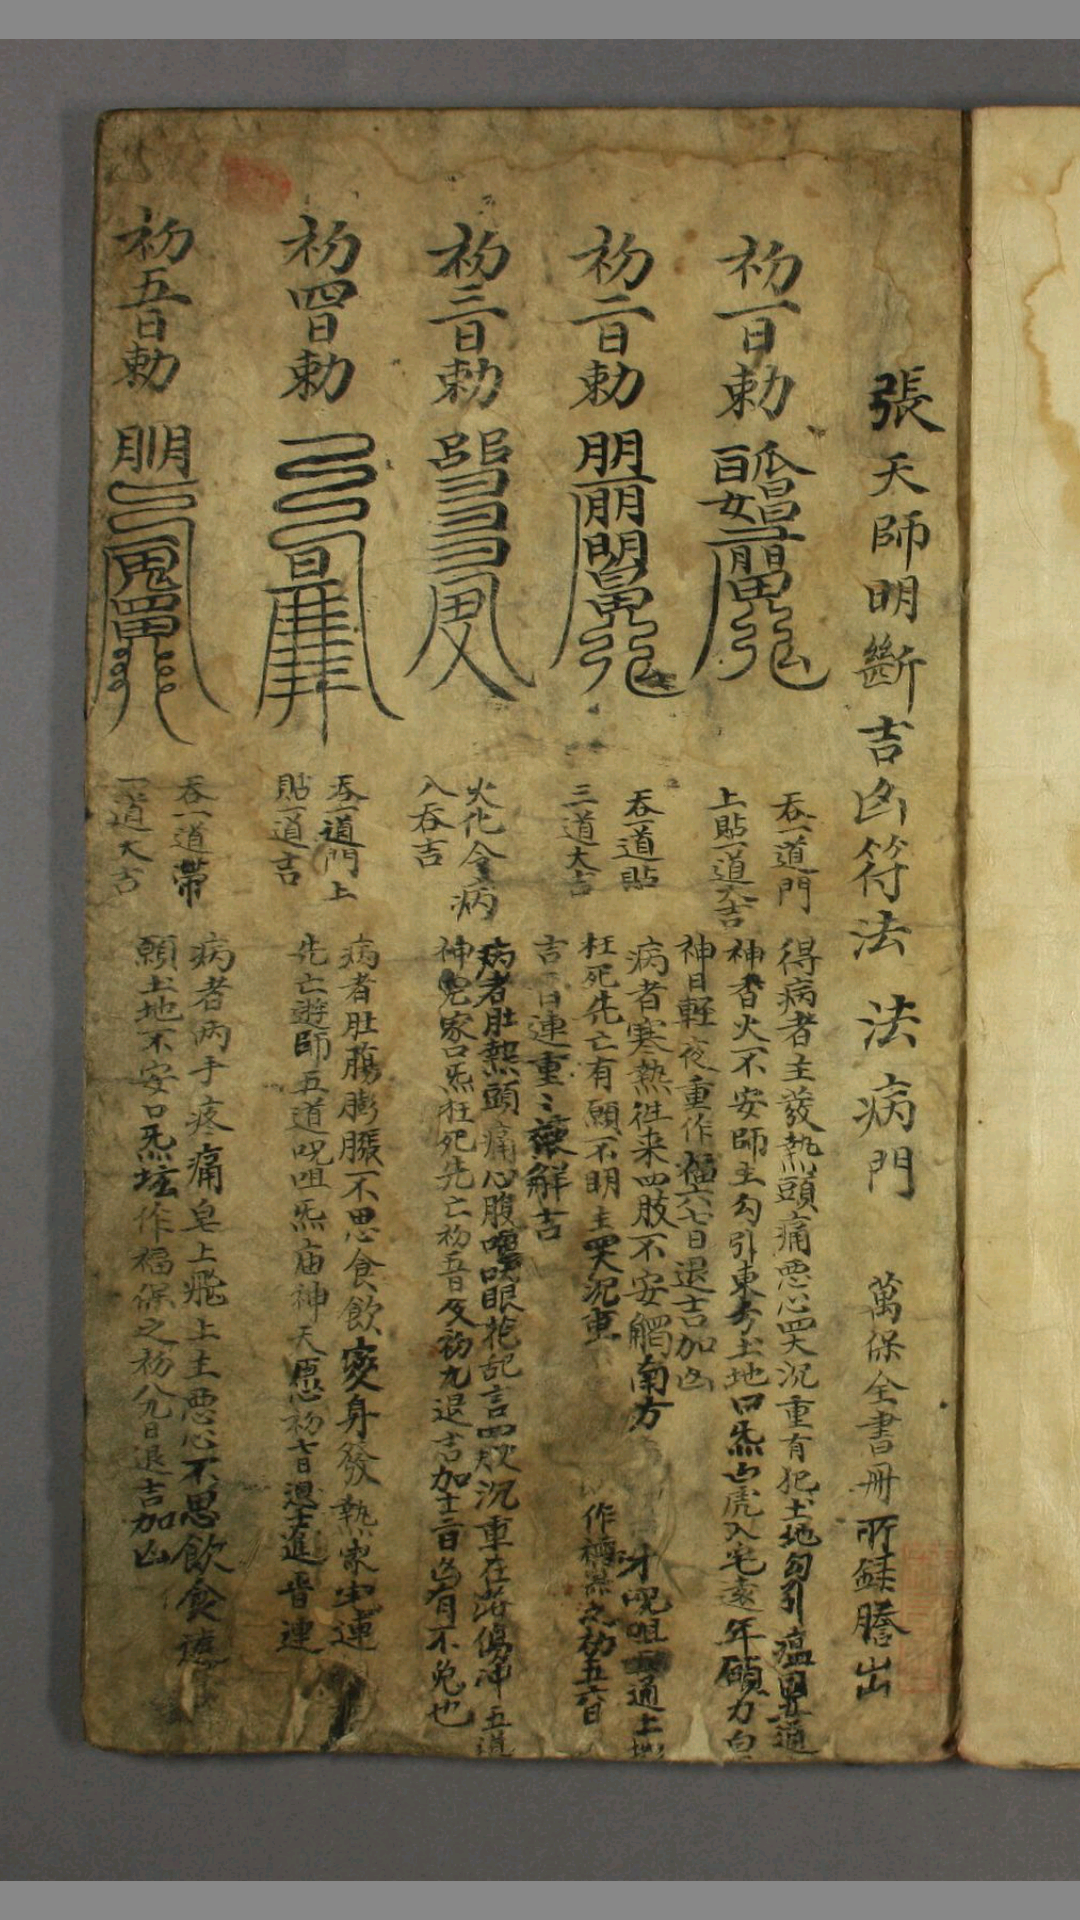 張天師明斷吉凶符法 法病門 萬保全書冊所錄謄出
初一日勅
吞一道門
上貼一道大吉
得病者主發熱頭痛惡心四大沉重有犯土地勾引瘟司五道
神香火不安師主勾引東方土地口炁山虎入宅遠年願力白
神日輕夜重作福六七日退吉加凶
初二日勅
吞一道貼
三道大吉
病者寒熱往来四肢不安觸南方 呪咀五通土地
枉死先亡有願不明主四大沉重 作福 之初五六日
吉一日連重〻禳解吉
初三日勅
火化令病
人吞吉
病者肚熱頭痛心腹 眼花乱言四肢沉重在 傷冲五道
神冤家口炁枉死先亡初五日及初九退吉加十二日凶有不免也
初四日勅
吞一道門上
貼一道吉
病者肚腸膨脹不思食飲変身發熱家宅連
先亡遊師五道呪咀炁庙神天愿初七日退士進晋連
初五日勅
吞一道帶
一道大吉
病者两手疼痛皂上飛上主惡心不思飲食
願土地不安口炁坛作福保之初八九日退吉加凶